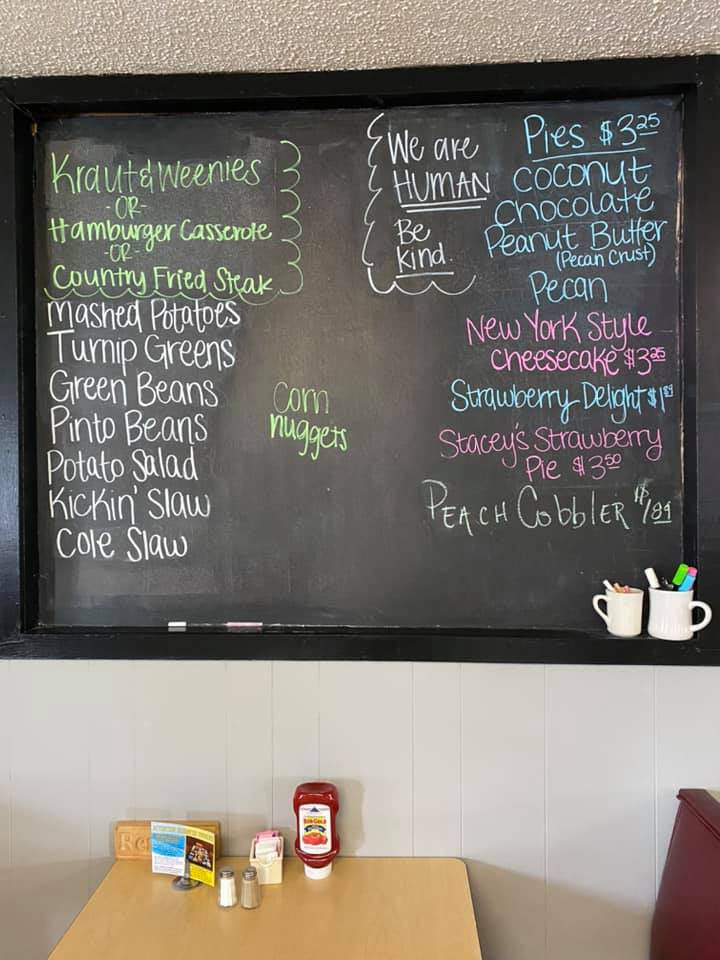 Kraut & Weenies
-OR-
Hamburger Casserole
-OR-
Country Fried Steak
Mashed Potatoes
Turnip Greens
Green Beans
Pinto Beans
Potato Salad
Kickin' Slaw
Cole Slaw
Corn
nuggets
We are
HUMAN
Be
Kind.
Pies $3.25
coconut
chocolate
Peanut Butter
(Pecan Crust)
Pecan
New York Style
cheesecake $3.25
Strawberry Delight $1.89
Stacey's Strawberry
Pie $3.50
PEACH CobblER $1.99
RED GOLD